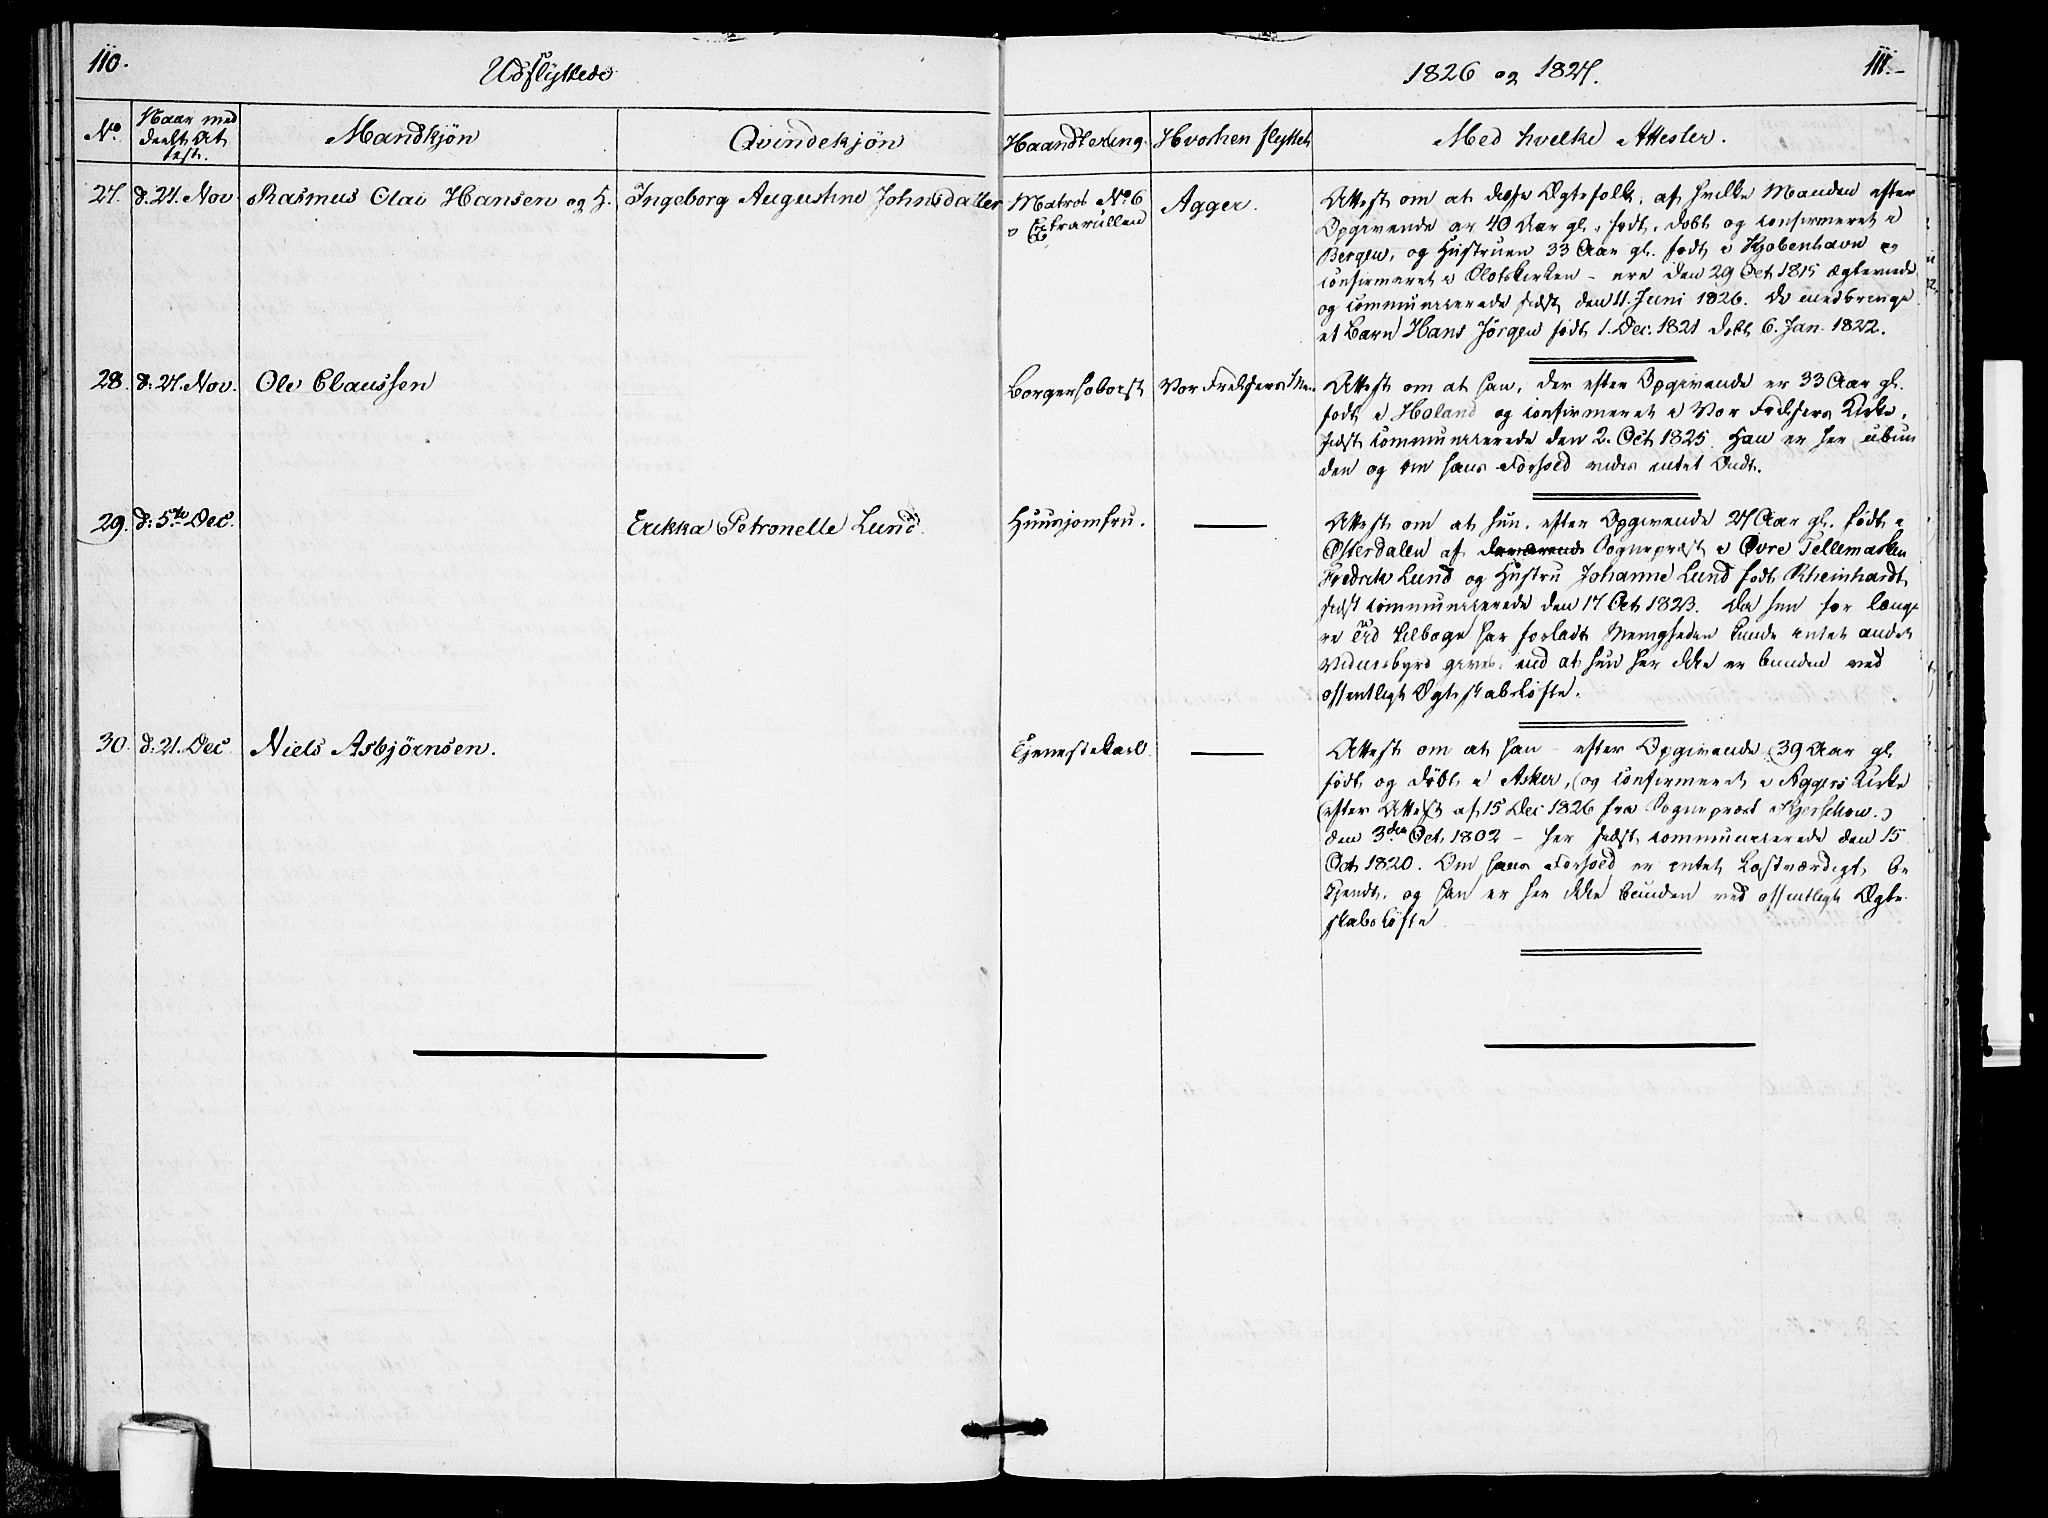 110.
Udflyttede
1826 og 1827.
111.
No.
Naar med
deelt At
test.
Mandkjøn
Qvindekjön
Haandtering.
Hvorhen flyttet
Med hvilke Attester.
27.
d. 21. Nov
Rasmus Olai Hansen og H.
Ingeborg Augustine Johnsdatter
Matros No 6
Extrarullen
Agger.
Attest om at disse Ægtefolk, af hvilke Manden efter
Opgivende er 40 Aar gl. født, døbt og confirmeret i
Bergen, og Hustruen 33 Aar gl. født i Kjøbenhavn og
confirmeret i Slotskirken - ere den 29 Oct 1815 ægteviede
og communicerede sidst den 11. Juni 1826. De medbringe
et Barn Hans Jörgen født 1. Dec. 1821 døbt 6. Jan. 1822.
28.
d: 27. Nov.
Ole Claussen
Borgersoborst
Vor Frelsers
Attest om at han, der efter Opgivende er 33 Aar gl.
født i Holand og confirmeret i Vor Frelsers Kirke,
sidst communicerede den 2. Oct 1825. Han er her ubun
den og om hans Forhold vides intet Ondt.
29.
d: 5te Dec.
Erikka Petronelle Lund.
Huusjomfru.
Attest om at hun, efter Opgivende 27 Aar gl. født i
Österdalen af daværende Sogneprest i Övre Tellemarken
Fredrik Lund og Hustru Johanne Lund født Rheinhardt,
sidst communicerede den 17 Oct 1823. Da hun for længe
re Tid tilbage har forladt Menigheden kunde intet andet
Vidnesbyrd gives, end at hun her ikke er bunden ved
offentligt Ægteskabsløfte.
30.
d: 21. Dec
Niels Asbjörnsen.
Tjenestekarl.
Attest om at han - efter Opgivende 39 Aar gl
født og døbt i Asker, og confirmeret i Aggers Kirke
(efter Attest af 15 Dec 1826 fra Sogneprest Kjerschow.)
den 3die Oct. 1802 - her sidst communicerede den 15
Oct 1820. Om hans Forhold er intet Lastværdigt be
kjendt, og han er her ikke bunden ved offentligt Ægte
skabsløfte